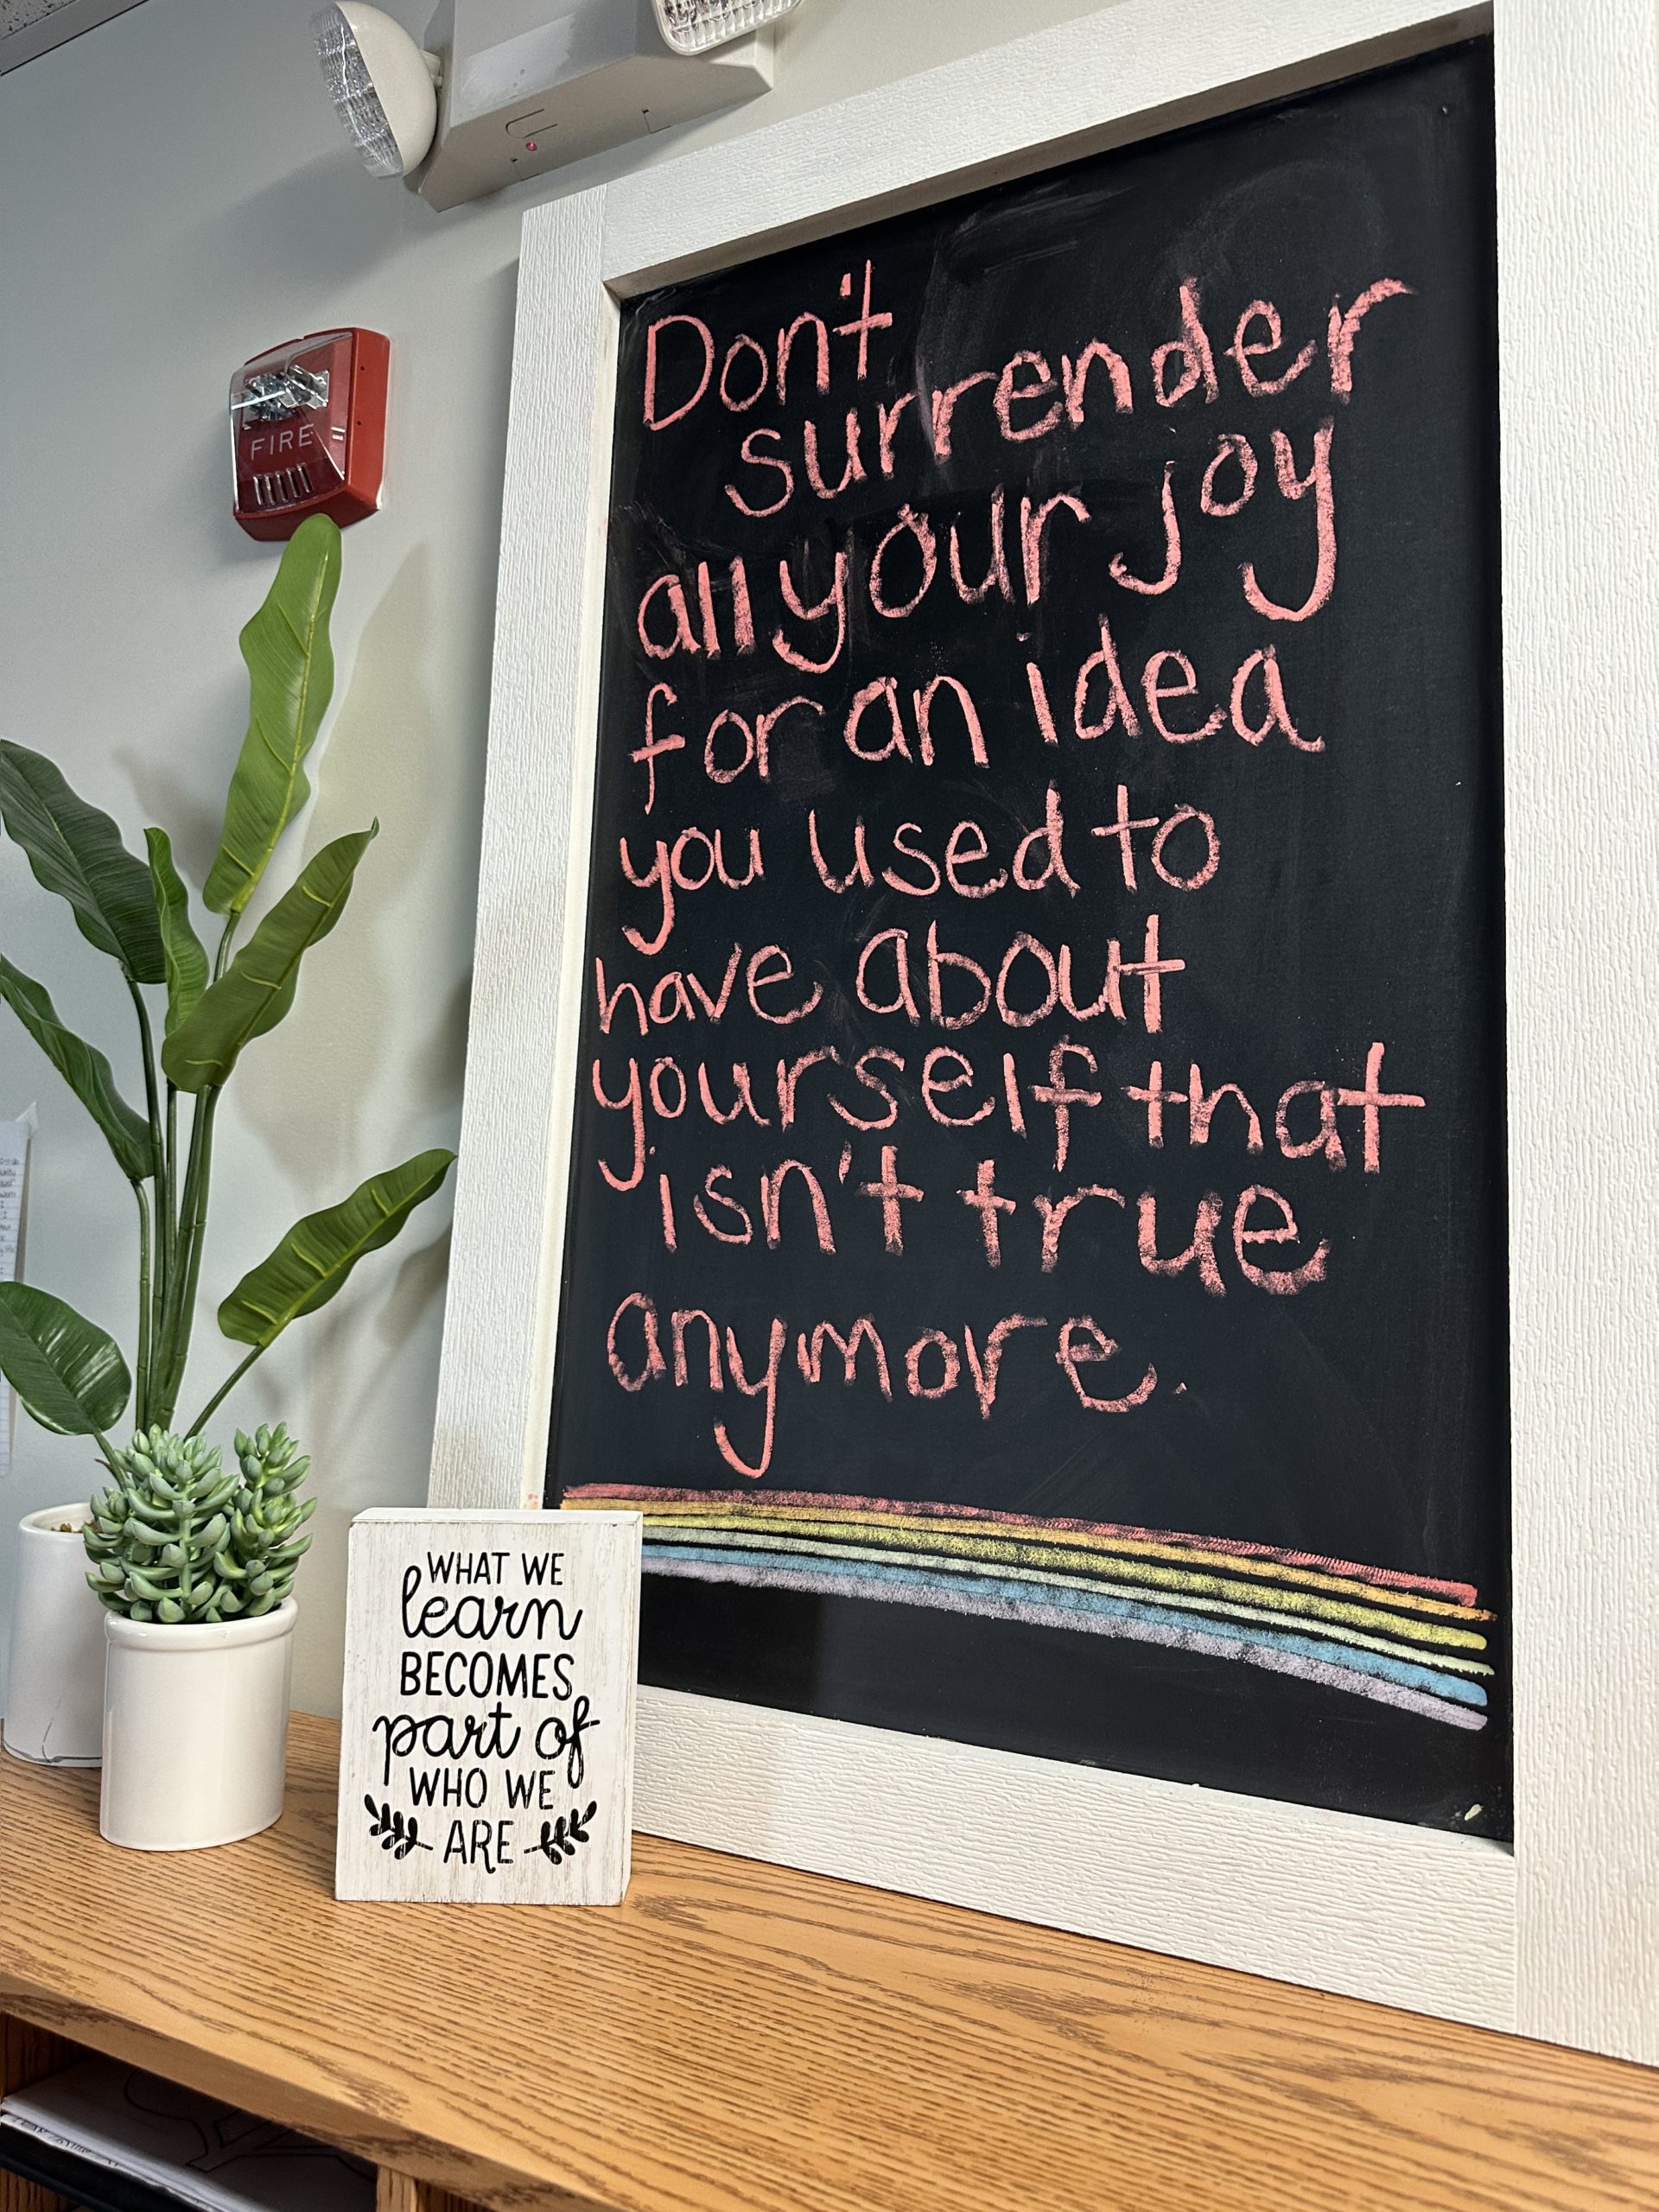 FIRE
Don't
surrender
all your joy
for an idea
you used to
have about
yourself that
isn't true
anymore.
WHAT WE
learn
BECOMES
part of
WHO WE
ARE